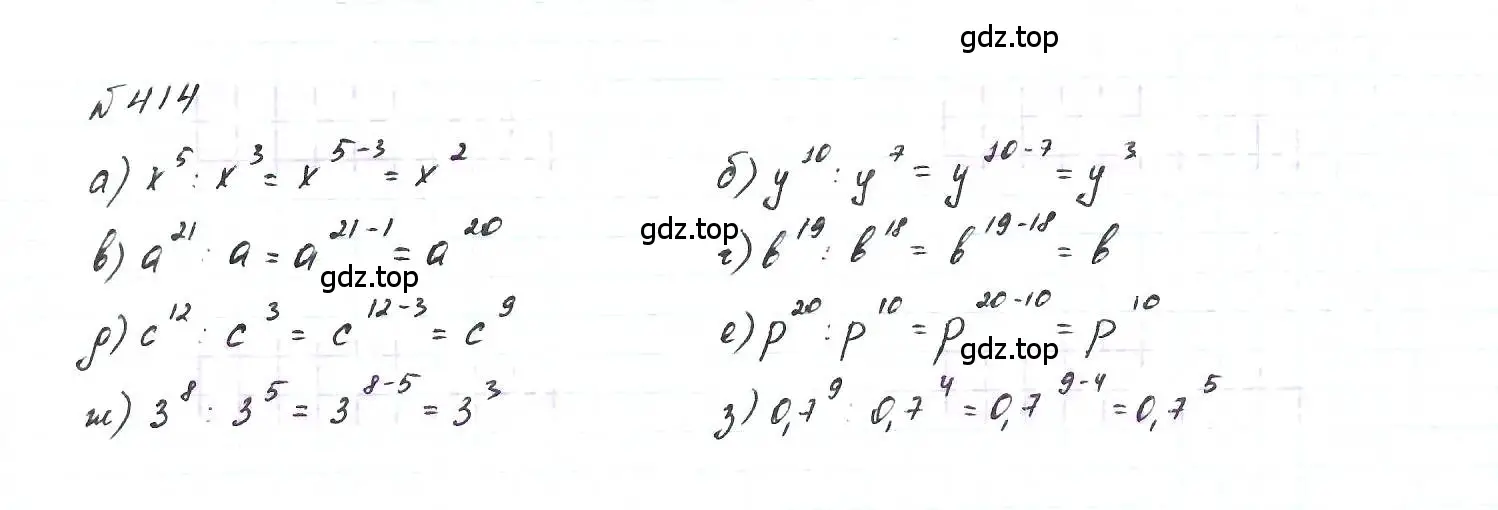 gdz.top
№ 414
а) x⁵ : x³ = x⁵⁻³ = x² б) y¹⁰ : y⁷ = y¹⁰⁻⁷ = y³
в) a²¹ : a = a²¹⁻¹ = a²⁰ gdz.top г) b¹⁹ : b¹⁸ = b¹⁹⁻¹⁸ = b
gdz.top
д) c¹² : c³ = c¹²⁻³ = c⁹ е) p²⁰ : p¹⁰ = p²⁰⁻¹⁰ = p¹⁰
gdz.top
ж) 3⁸ : 3⁵ = 3⁸⁻⁵ = 3³ з) 0,7⁹ : 0,7⁴ = 0,7⁹⁻⁴ = 0,7⁵
gdz.top